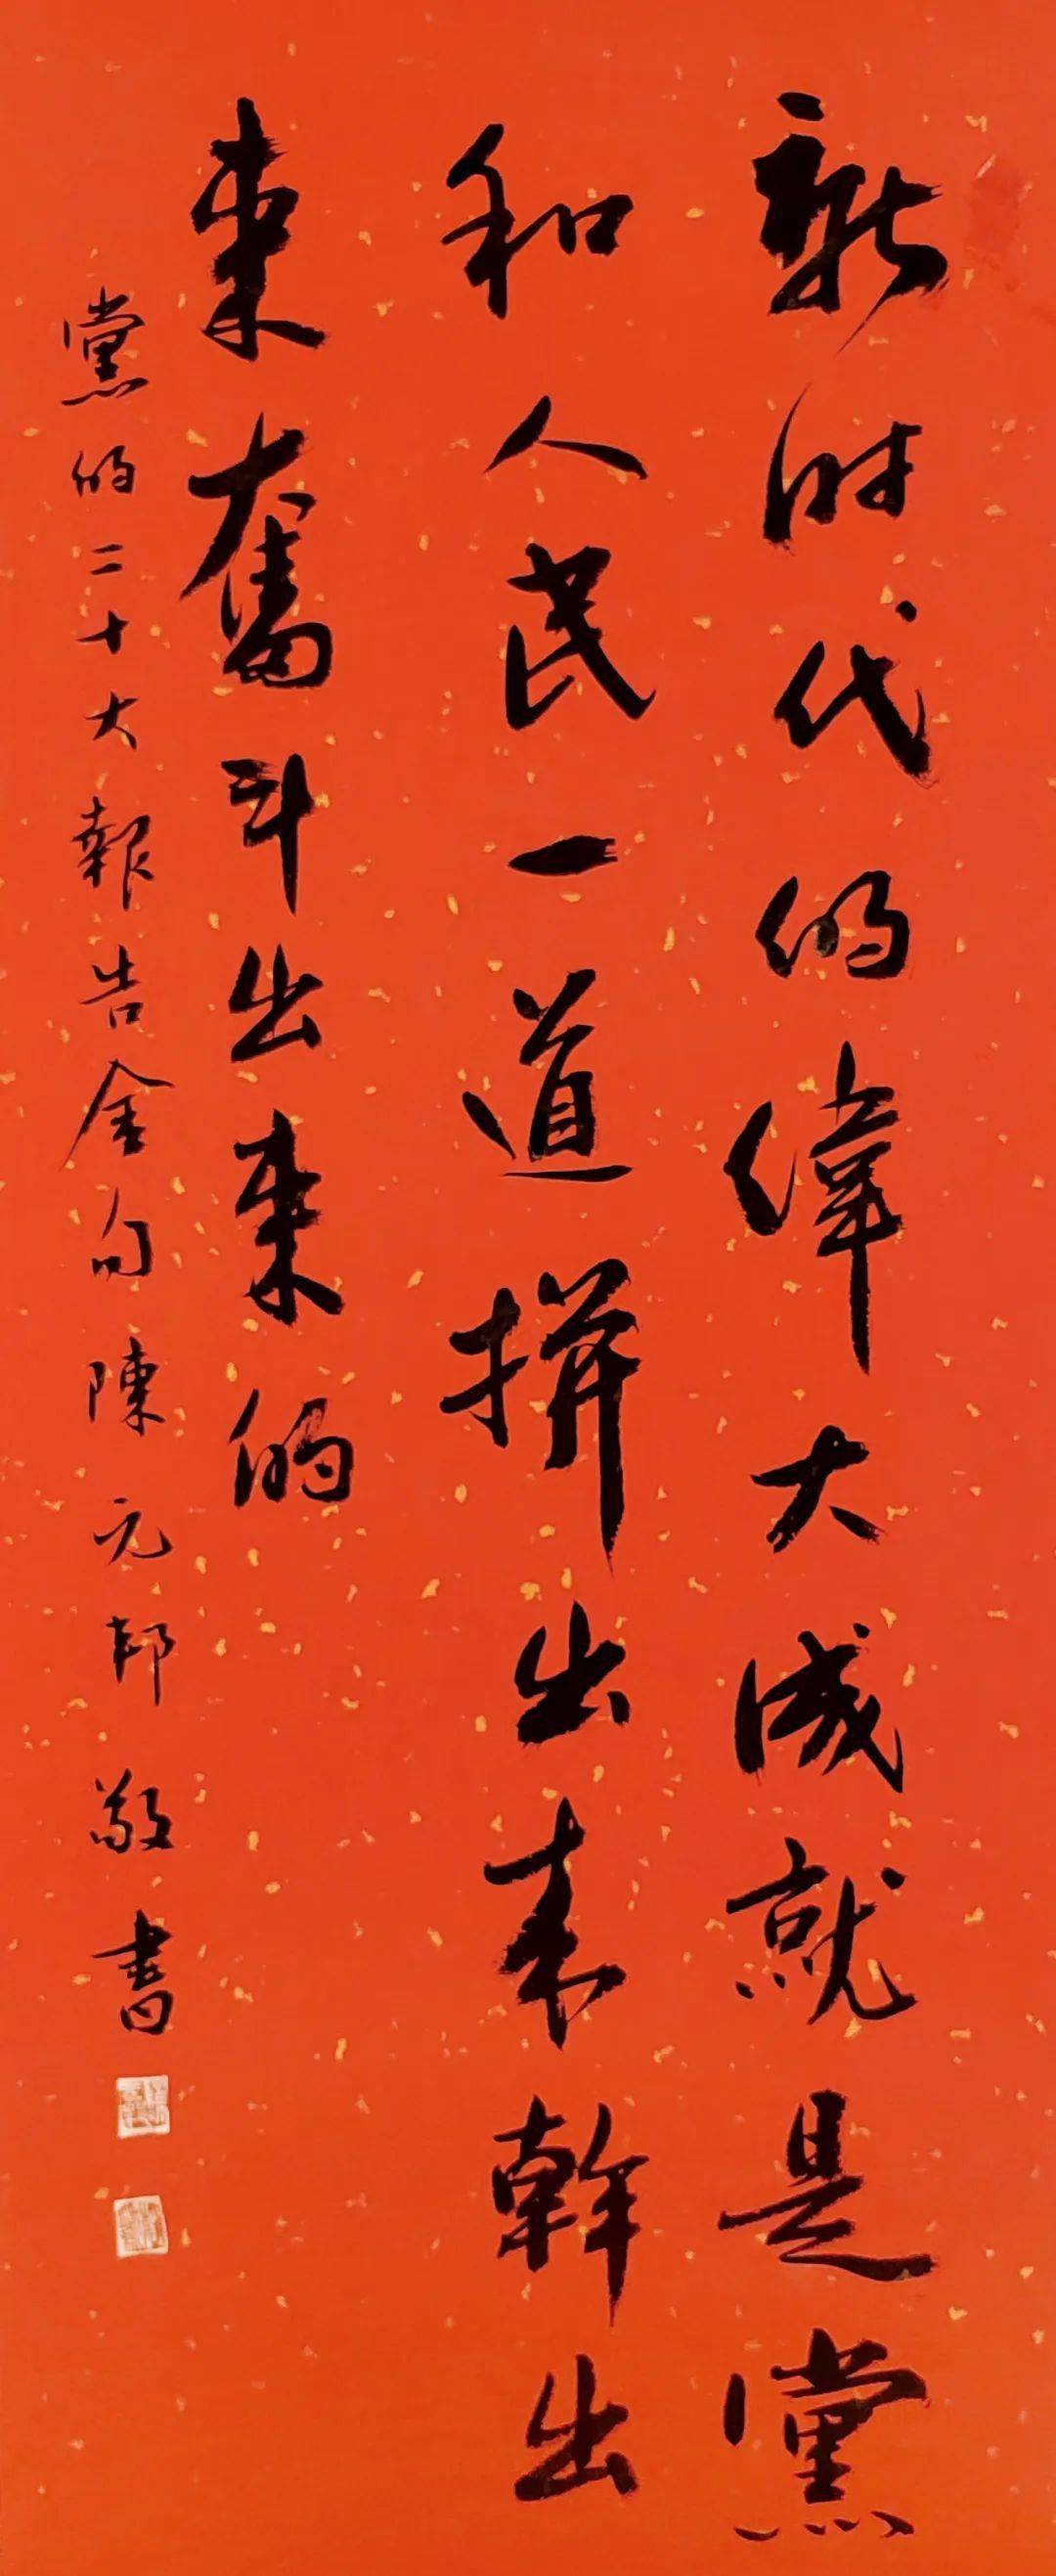 新时代的偉大成就是黨
和人民一道拼出来幹出
来奮斗出来的
黨的二十大報告金句陳元邦敬書